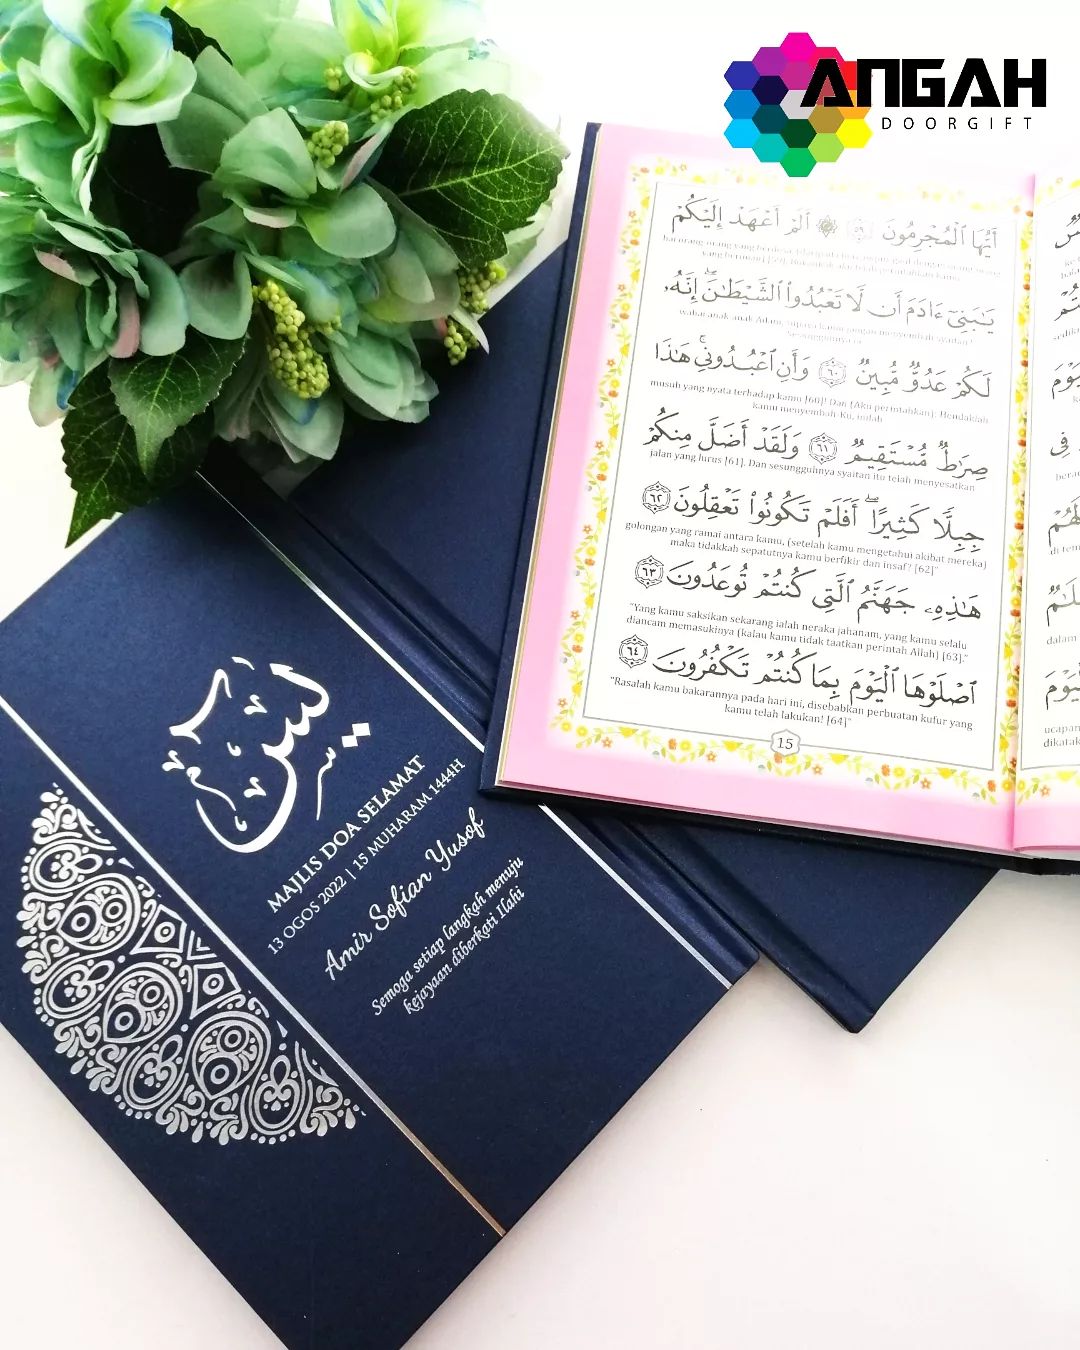 ANGAH
DOORGIFT
أَيُّهَا ٱلْمُجْرِمُونَ ٥٩ أَلَمْ أَعْهَدْ إِلَيْكُمْ
يَـٰبَنِىٓ ءَادَمَ أَن لَّا تَعْبُدُوا۟ ٱلشَّيْطَـٰنَ ۖ إِنَّهُۥ
wahai anak-anak Adam, supaya kamu jangan menyembah syaitan?
Sesungguhnya ia
لَكُمْ عَدُوٌّ مُّبِينٌ ٦٠ وَأَنِ ٱعْبُدُونِى ۚ هَـٰذَا
musuh yang nyata terhadap kamu [60]! Dan (Aku perintahkan): Hendaklah
kamu menyembah-Ku, inilah
صِرَٰطٌ مُّسْتَقِيمٌ ٦١ وَلَقَدْ أَضَلَّ مِنكُمْ
jalan yang lurus [61]. Dan sesungguhnya syaitan itu telah menyesatkan
جِبِلًّا كَثِيرًا ۖ أَفَلَمْ تَكُونُوا۟ تَعْقِلُونَ ٦٢
golongan yang ramai antara kamu, (setelah kamu mengetahui akibat mereka)
maka tidakkah sepatutnya kamu berfikir dan insaf? [62]"
هَـٰذِهِۦ جَهَنَّمُ ٱلَّتِى كُنتُمْ تُوعَدُونَ ٦٣
"Yang kamu saksikan sekarang ialah neraka jahanam, yang kamu selalu
diancam memasukinya (kalau kamu tidak taatkan perintah Allah) [63]."
ٱصْلَوْهَا ٱلْيَوْمَ بِمَا كُنتُمْ تَكْفُرُونَ ٦٤
"Rasalah kamu bakarannya pada hari ini, disebabkan perbuatan kufur yang
kamu telah lakukan! [64]"
15
يس
MAJLIS DOA SELAMAT
13 OGOS 2022 | 15 MUHARAM 1444H
Amir Sofian Yusof
Semoga setiap langkah menuju
kejayaan diberkati Ilahi